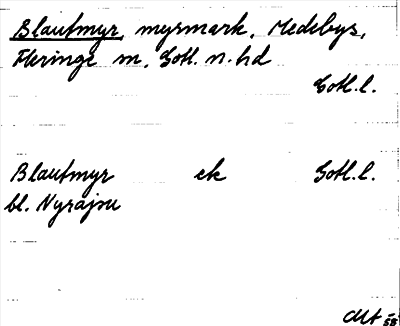 Blautmyr, myrmark, Medebys,
Fleringe sn, Gotl. n. hd
Gotl. l.
Blautmyr ek Gotl. l.
bl. Nyrajsu